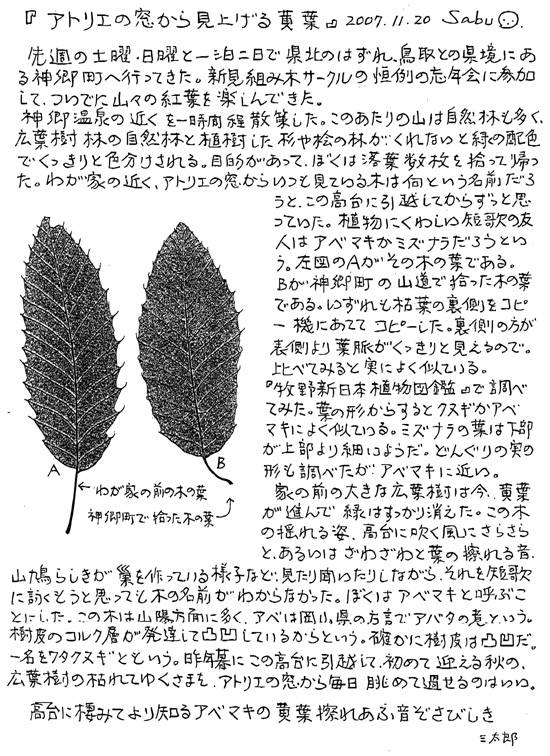 『アトリエの窓から見上げる黄葉』 2007.11.20 Sabu
先週の土曜・日曜と一泊二日で県北のはずれ、鳥取との県境にあ
る神郷町へ行ってきた。新見組み木サークルの恒例の忘年会に参加
して、ついでに山々の紅葉を楽しんできた。
神郷温泉の近くを一時間程散策した。このあたりの山は自然林も多く、
広葉樹林の自然林と植樹した杉や桧の林が、くれないと緑の配色
でくっきりと色分けされる。目的があって、ぼくは落葉数枚を拾って帰っ
た。わが家の近く、アトリエの窓からいつも見ている木は何という名前だろ
うと、この高台に引越してからずっと思
っていた。植物にくわしい短歌の友
人はアベマキかミズナラだろうとい
う。左図のAがその木の葉である。
Bが神郷町の山道で拾った木の葉
である。いずれも枯葉の裏側をコピ
ー機にあててコピーした。裏側の方が
表側より葉脈がくっきりと見えるので。
比べてみると実によく似ている。
『牧野新日本植物図鑑』で調べ
てみた。葉の形からするとクヌギかアベ
マキによく似ている。ミズナラの葉は下部
が上部より細いようだ。どんぐりの実の
形も調べたが、アベマキに近い。
A
B
←わが家の前の木の葉
神郷町で拾った木の葉
家の前の大きな広葉樹は今、黄葉
が進んで緑はすっかり消えた。この木
の揺れる姿、高台に吹く風にさらさら
と、あるいはざわざわと葉の擦れる音、
山鳩らしきが巣を作っている様子など、見たり聞いたりしながら、それを短歌
に詠もうと思っても木の名前がわからなかった。ぼくはアベマキと呼ぶこ
とにした。この木は山陽方面に多く、アベは岡山県の方言でアバタの意という。
樹皮のコルク層が発達して凸凹しているからという。確かに樹皮は凸凹だ。
一名をワタクヌギとという。昨年暮にこの高台に引越して、初めて迎える秋の、
広葉樹の枯れてゆくさまを、アトリエの窓から毎日眺めて過せるのはいい。
高台に棲みてより知るアベマキの黄葉擦れあふ音ぞさびしき
三太郎